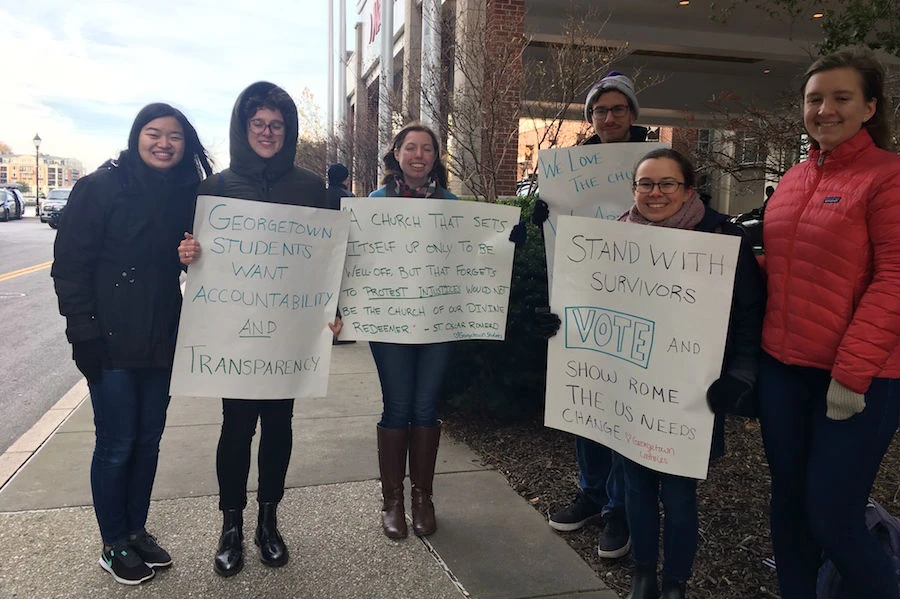 GEORGETOWN
STUDENTS
WANT
ACCOUNTABILITY
AND
TRANSPARENCY
"A CHURCH THAT SETS
ITSELF UP ONLY TO BE
WELL-OFF, BUT THAT FORGETS
TO PROTEST INJUSTICES WOULD NOT
BE THE CHURCH OF OUR DIVINE
REDEEMER." - ST. OSCAR ROMERO
WE LOVE
THE CHU
STAND WITH
SURVIVORS
VOTE AND
SHOW ROME
THE US NEEDS
CHANGE
Georgetown
Catholics
patagonia